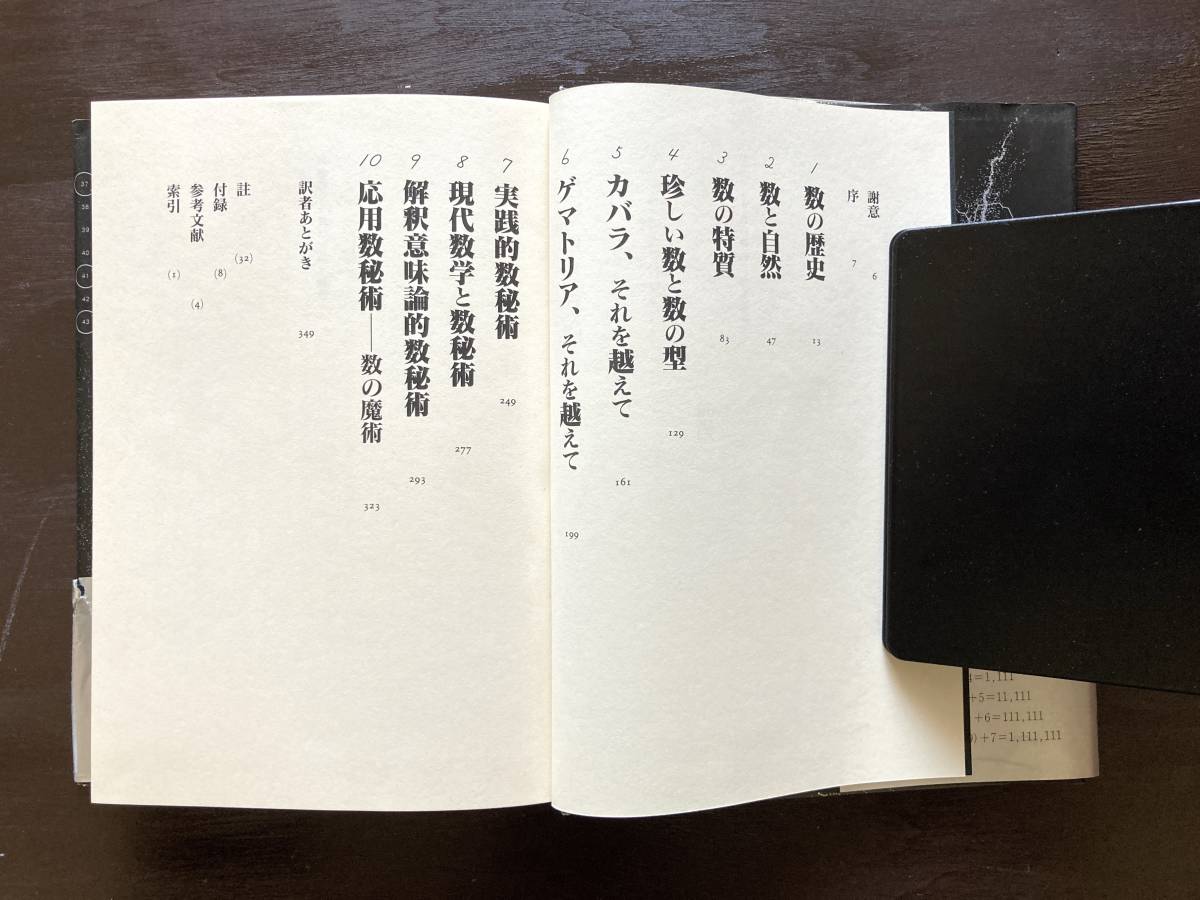 謝意 6
序 7
1 数の歴史 13
2 数と自然 47
3 数の特質 83
4 珍しい数と数の型 129
5 カバラ、それを越えて 161
6 ゲマトリア、それを越えて 199
7 実践的数秘術 249
8 現代数学と数秘術 277
9 解釈意味論的数秘術 293
10 応用数秘術——数の魔術 323
訳者あとがき 349
註 (32)
付録 (8)
参考文献 (4)
索引 (1)
4=1,111
+5=11,111
+6=111,111
)+7=1,111,111
37
38
39
40
41
42
43